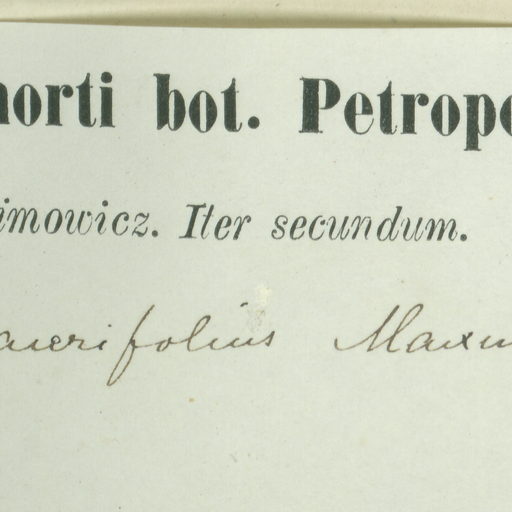 horti bot. Petropo
imowicz. Iter secundum.
aucrifolius Maxim